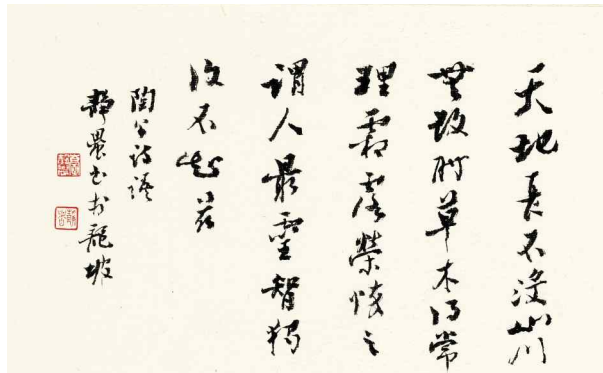 天地長不沒山川
無改時草木得常
理霜露榮悴之
謂人最靈智獨
復不如茲
陶公詩語
靜農書於龍坡